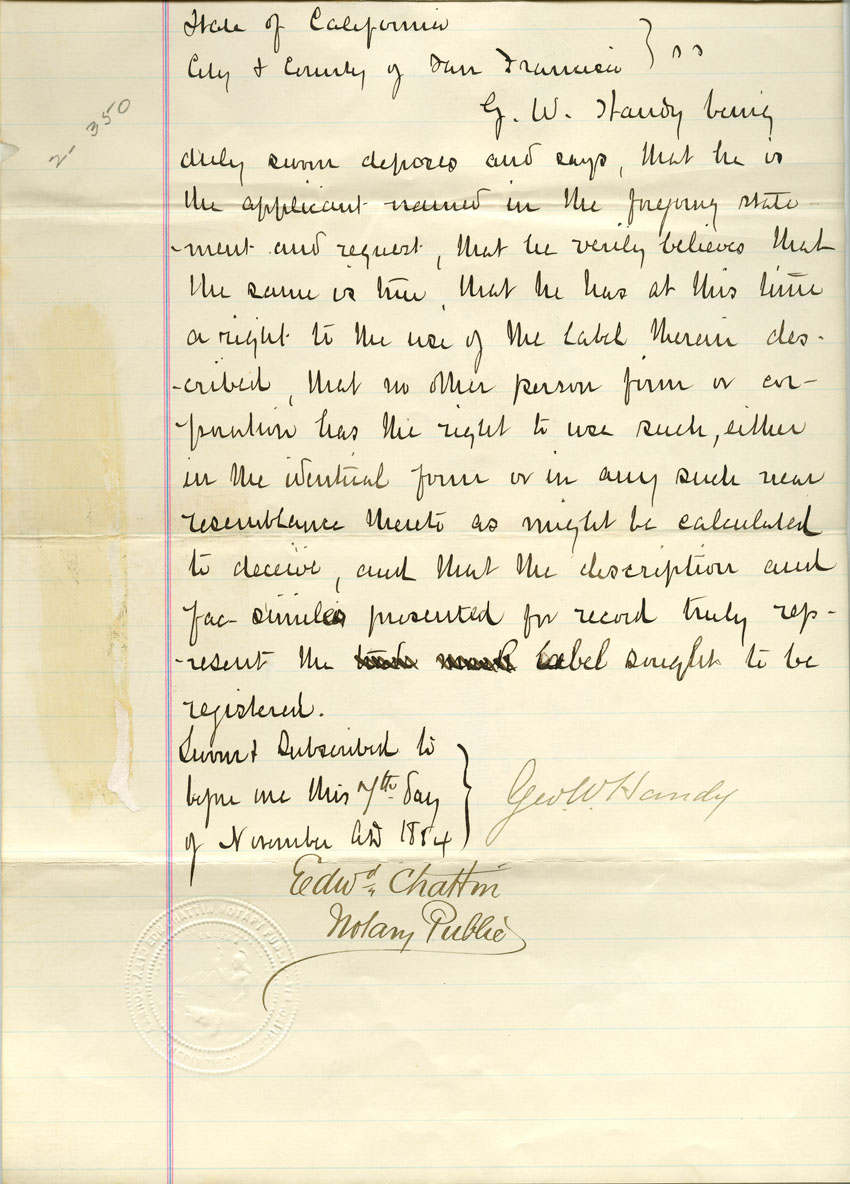 State of California
City & County of San Francisco } ss
2- 350
G. W. Handy being
duly sworn deposes and says, that he is
the applicant named in the foregoing state-
-ment and request, that he verily believes that
the same is true, that he has at this time
a right to the use of the Label therein des-
-cribed, that no other person firm or cor-
-poration has the right to use such, either
in the identical form or in any such near
resemblance thereto as might be calculated
to deceive, and that the description and
fac-similes presented for record truly rep-
-resent the trade mark label sought to be
registered.
Sworn & Subscribed to
before me this 7th day
of November AD 1884
Geo. W. Handy
Edwd Chattin
Notary Public